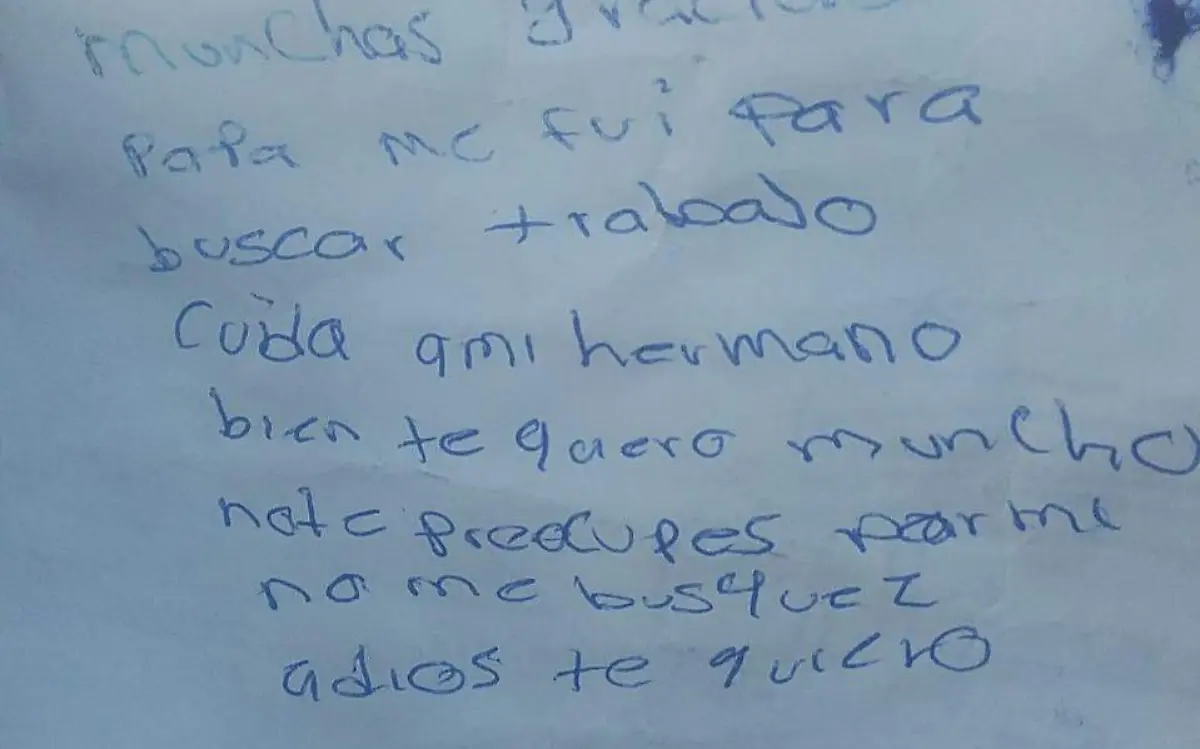 munchas gracias
papa me fui para
buscar trabajo
Cuida ami hermano
bien te quero muncho
note preocupes por mi
no me busquez
adios te quiero